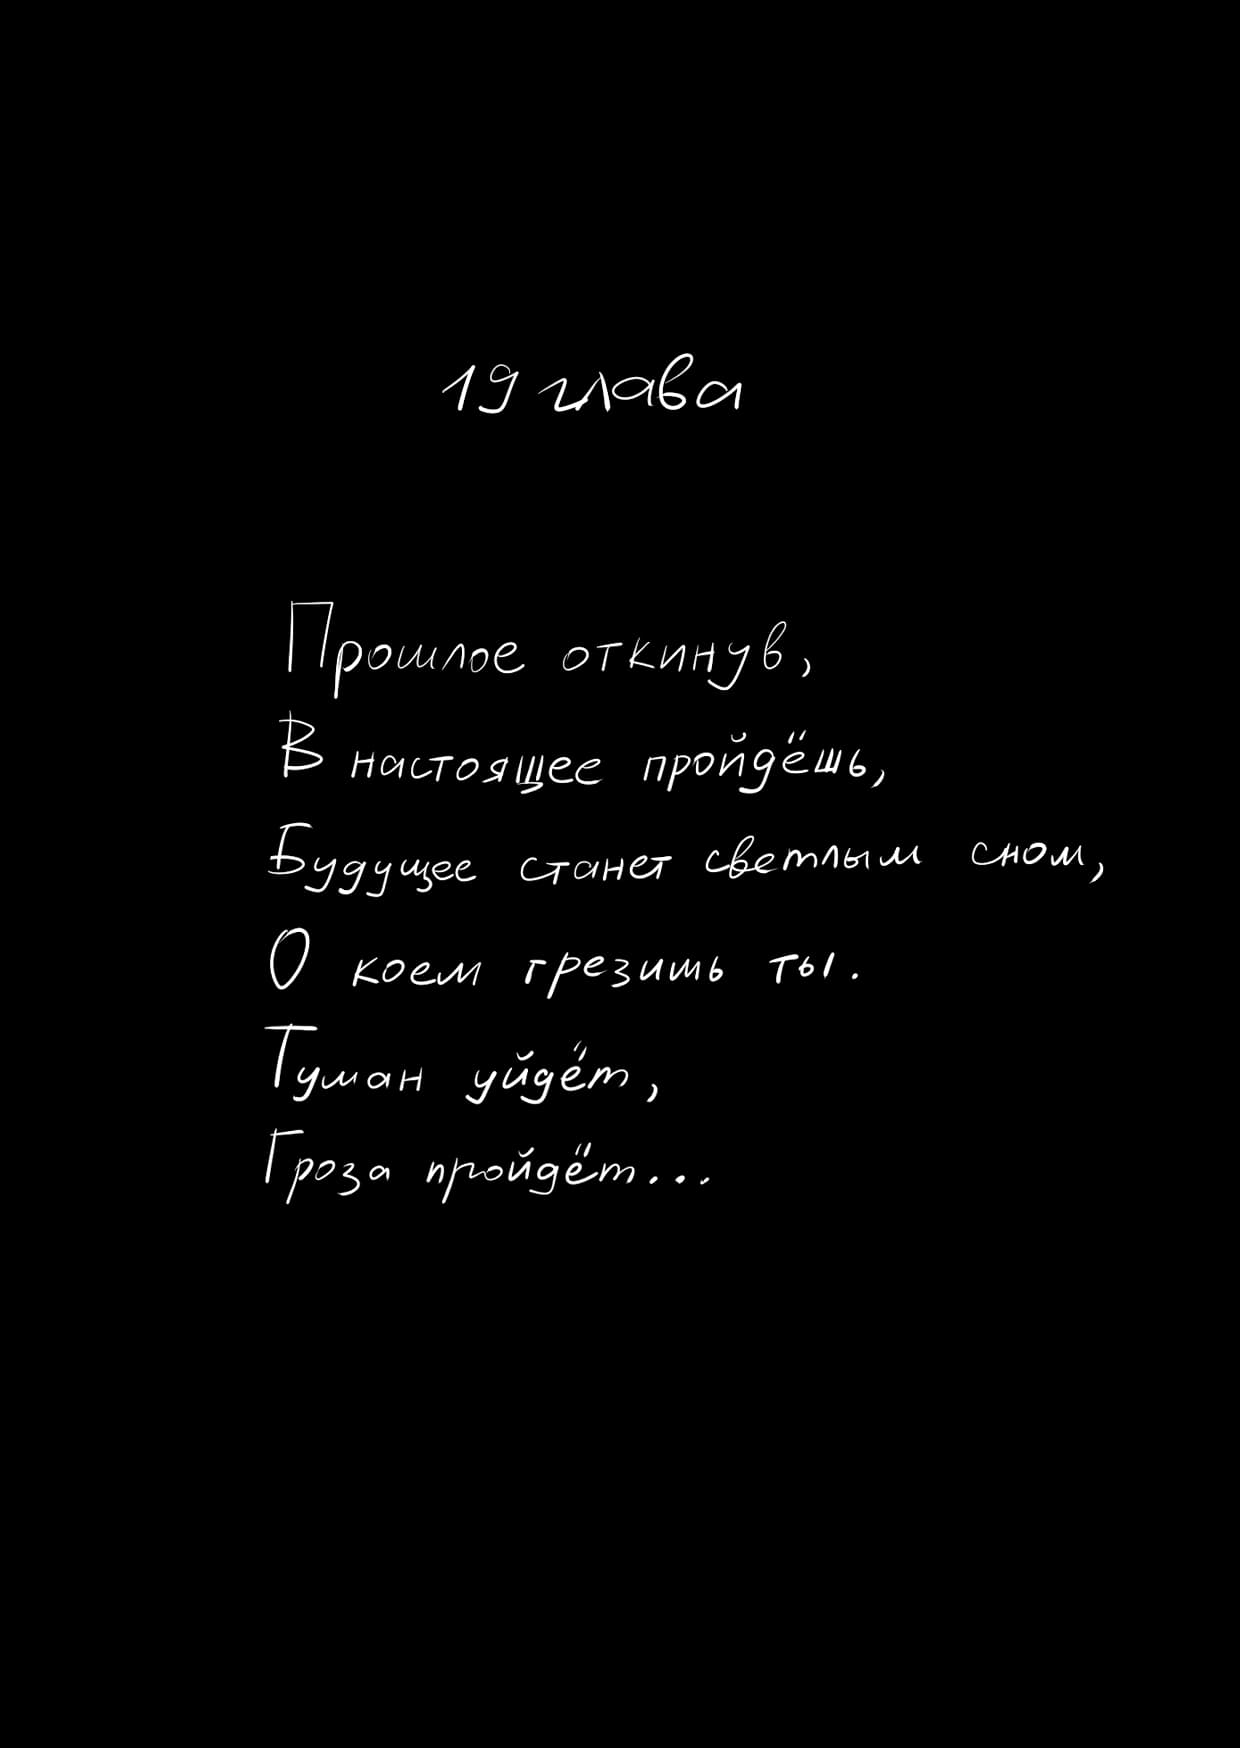 19 глава
Прошлое откинув,
В настоящее пройдёшь,
Будущее станет светлым сном,
О коем грезишь ты.
Туман уйдёт,
Гроза пройдёт...